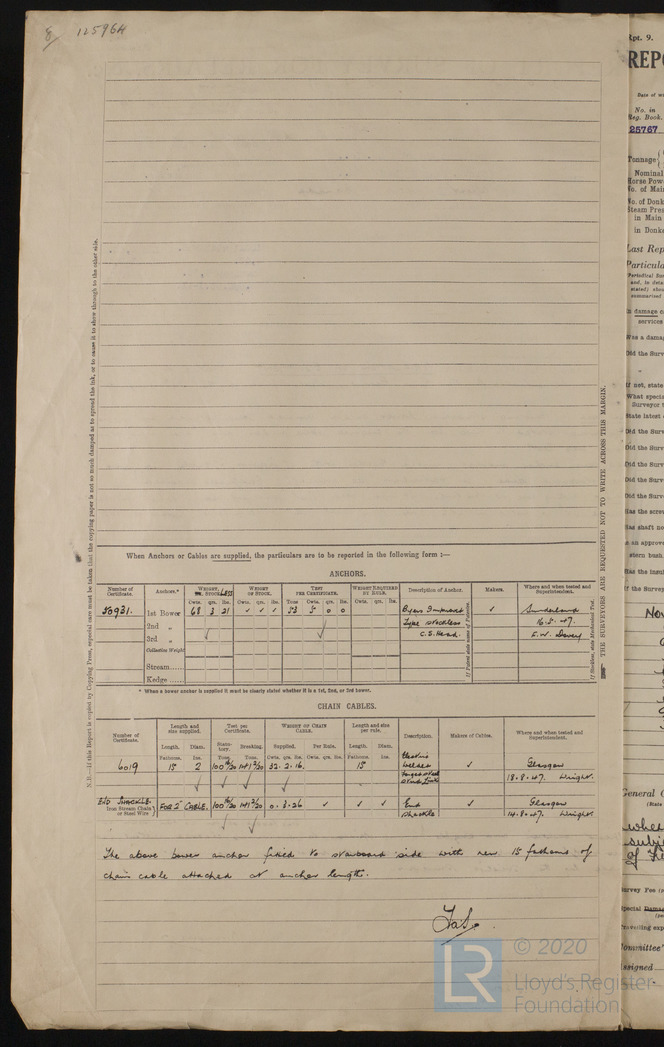 8 12596H
Rpt. 9.
REPO
Date of w
No. in
Reg. Book.
25767
Tonnage
Nominal
Horse Pow
No. of Mai
No. of Donk
Steam Pres
in Main
in Donk
Last Rep
Particula
In damage c
services
Was a dama
Did the Surv
If not, state
What specia
Surveyor
State latest
Did the Surv
Did the Surv
Did the Surv
Did the Surv
Has the scre
Has shaft no
stern bush
Has the insul
If the Survey
Nov
General
(State
whe
subj
of
Survey Fee
Special Damag
Travelling exp
Committee'
Assigned
N.B.—If this Report is copied by Copying Press, especial care must be taken that the copying paper is not so much damped as to spread the ink, or to cause it to show through to the other side.
THE SURVEYORS ARE REQUESTED NOT TO WRITE ACROSS THIS MARGIN.
When Anchors or Cables are supplied, the particulars are to be reported in the following form :—
ANCHORS.
Number of Certificate. Anchors.* WEIGHT, STOCKLESS WEIGHT OF STOCK. TEST PER CERTIFICATE. WEIGHT REQUIRED BY RULE. Description of Anchor. Makers. Where and when tested and Superintendent.
Cwts. qrs. lbs. Cwts. qrs. lbs. Tons Cwts. qrs. lbs. Cwts. qrs. lbs.
53931. 1st Bower 68 3 21 ✓ ✓ ✓ 53 5 0 0 Byers Improved ✓ Sunderland
2nd „ Type Stockless 16.5.47.
3rd „ ✓ ✓ C.S. Head. E.W. Davey
Collective Weight
Stream
Kedge
* When a bower anchor is supplied it must be clearly stated whether it is a 1st, 2nd, or 3rd bower.
CHAIN CABLES.
Number of Certificate. Length and size supplied. Test per Certificate. WEIGHT OF CHAIN CABLE. Length and size per rule. Description. Makers of Cables. Where and when tested and Superintendent.
Length. Diam. Statutory. Breaking. Supplied. Per Rule. Length. Diam.
Fathoms. Ins. Tons. Tons. Cwts. qrs. lbs. Cwts. qrs. lbs. Fathoms. Ins.
6019 15 2 32. 2. 16. 15 Electric welded ✓ Glasgow
18.8.47. Wright.
✓ ✓ ✓
End Shackle. FOR 2" CABLE. 0. 3. 26 ✓ ✓ ✓ End ✓ Glasgow
Iron Stream Chain or Steel Wire Shackle 14.8.47. Wright
✓ ✓
The above bower anchor fitted to starboard side with new 15 fathoms of
chain cable attached at anchor length.
LR © 2020
Lloyd's Register
Foundation